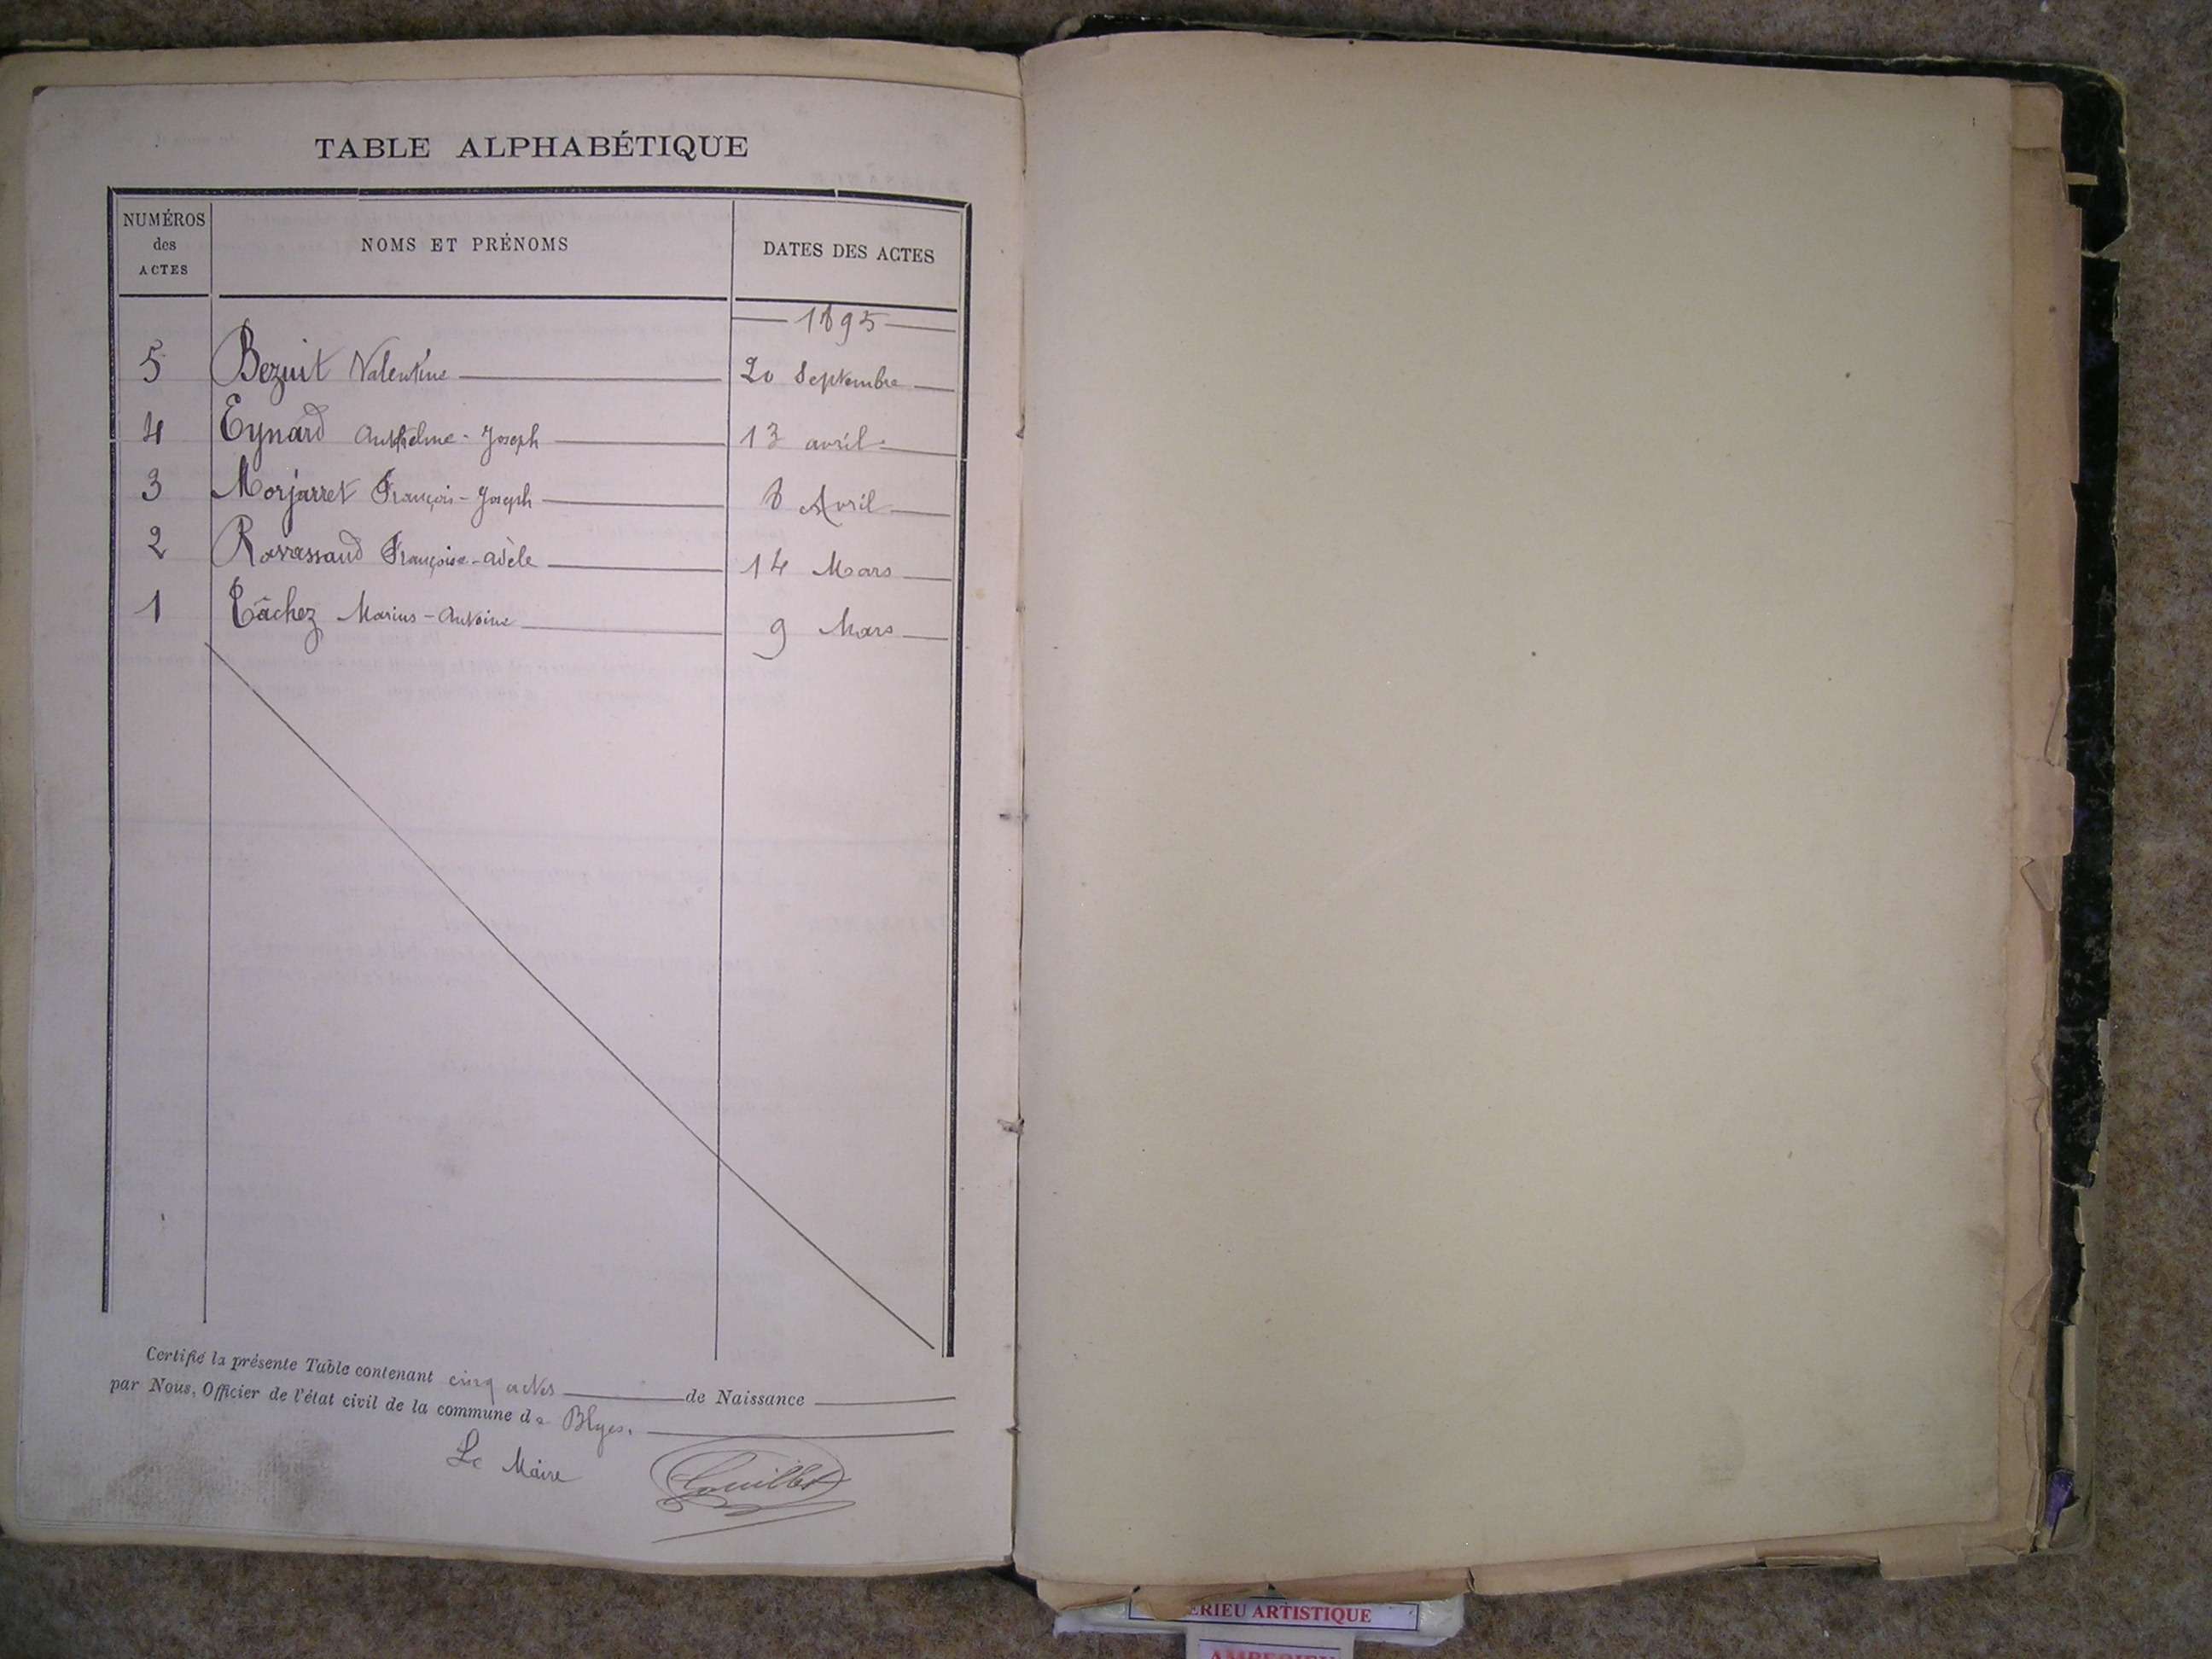 TABLE ALPHABÉTIQUE
NUMÉROS des ACTES NOMS ET PRÉNOMS DATES DES ACTES
1895
5 Bezuit Valentine 20 Septembre
4 Eynard Anthelme-Joseph 13 avril
3 Morjarret François-Joseph 8 Avril
2 Ravassaud Françoise-Adèle 14 Mars
1 Tâchez Marius-Antoine 9 Mars
Certifié la présente Table contenant cinq actes de Naissance
par Nous, Officier de l'état civil de la commune de Blyes.
Le Maire
ERIEU ARTISTIQUE
AMBERIEU